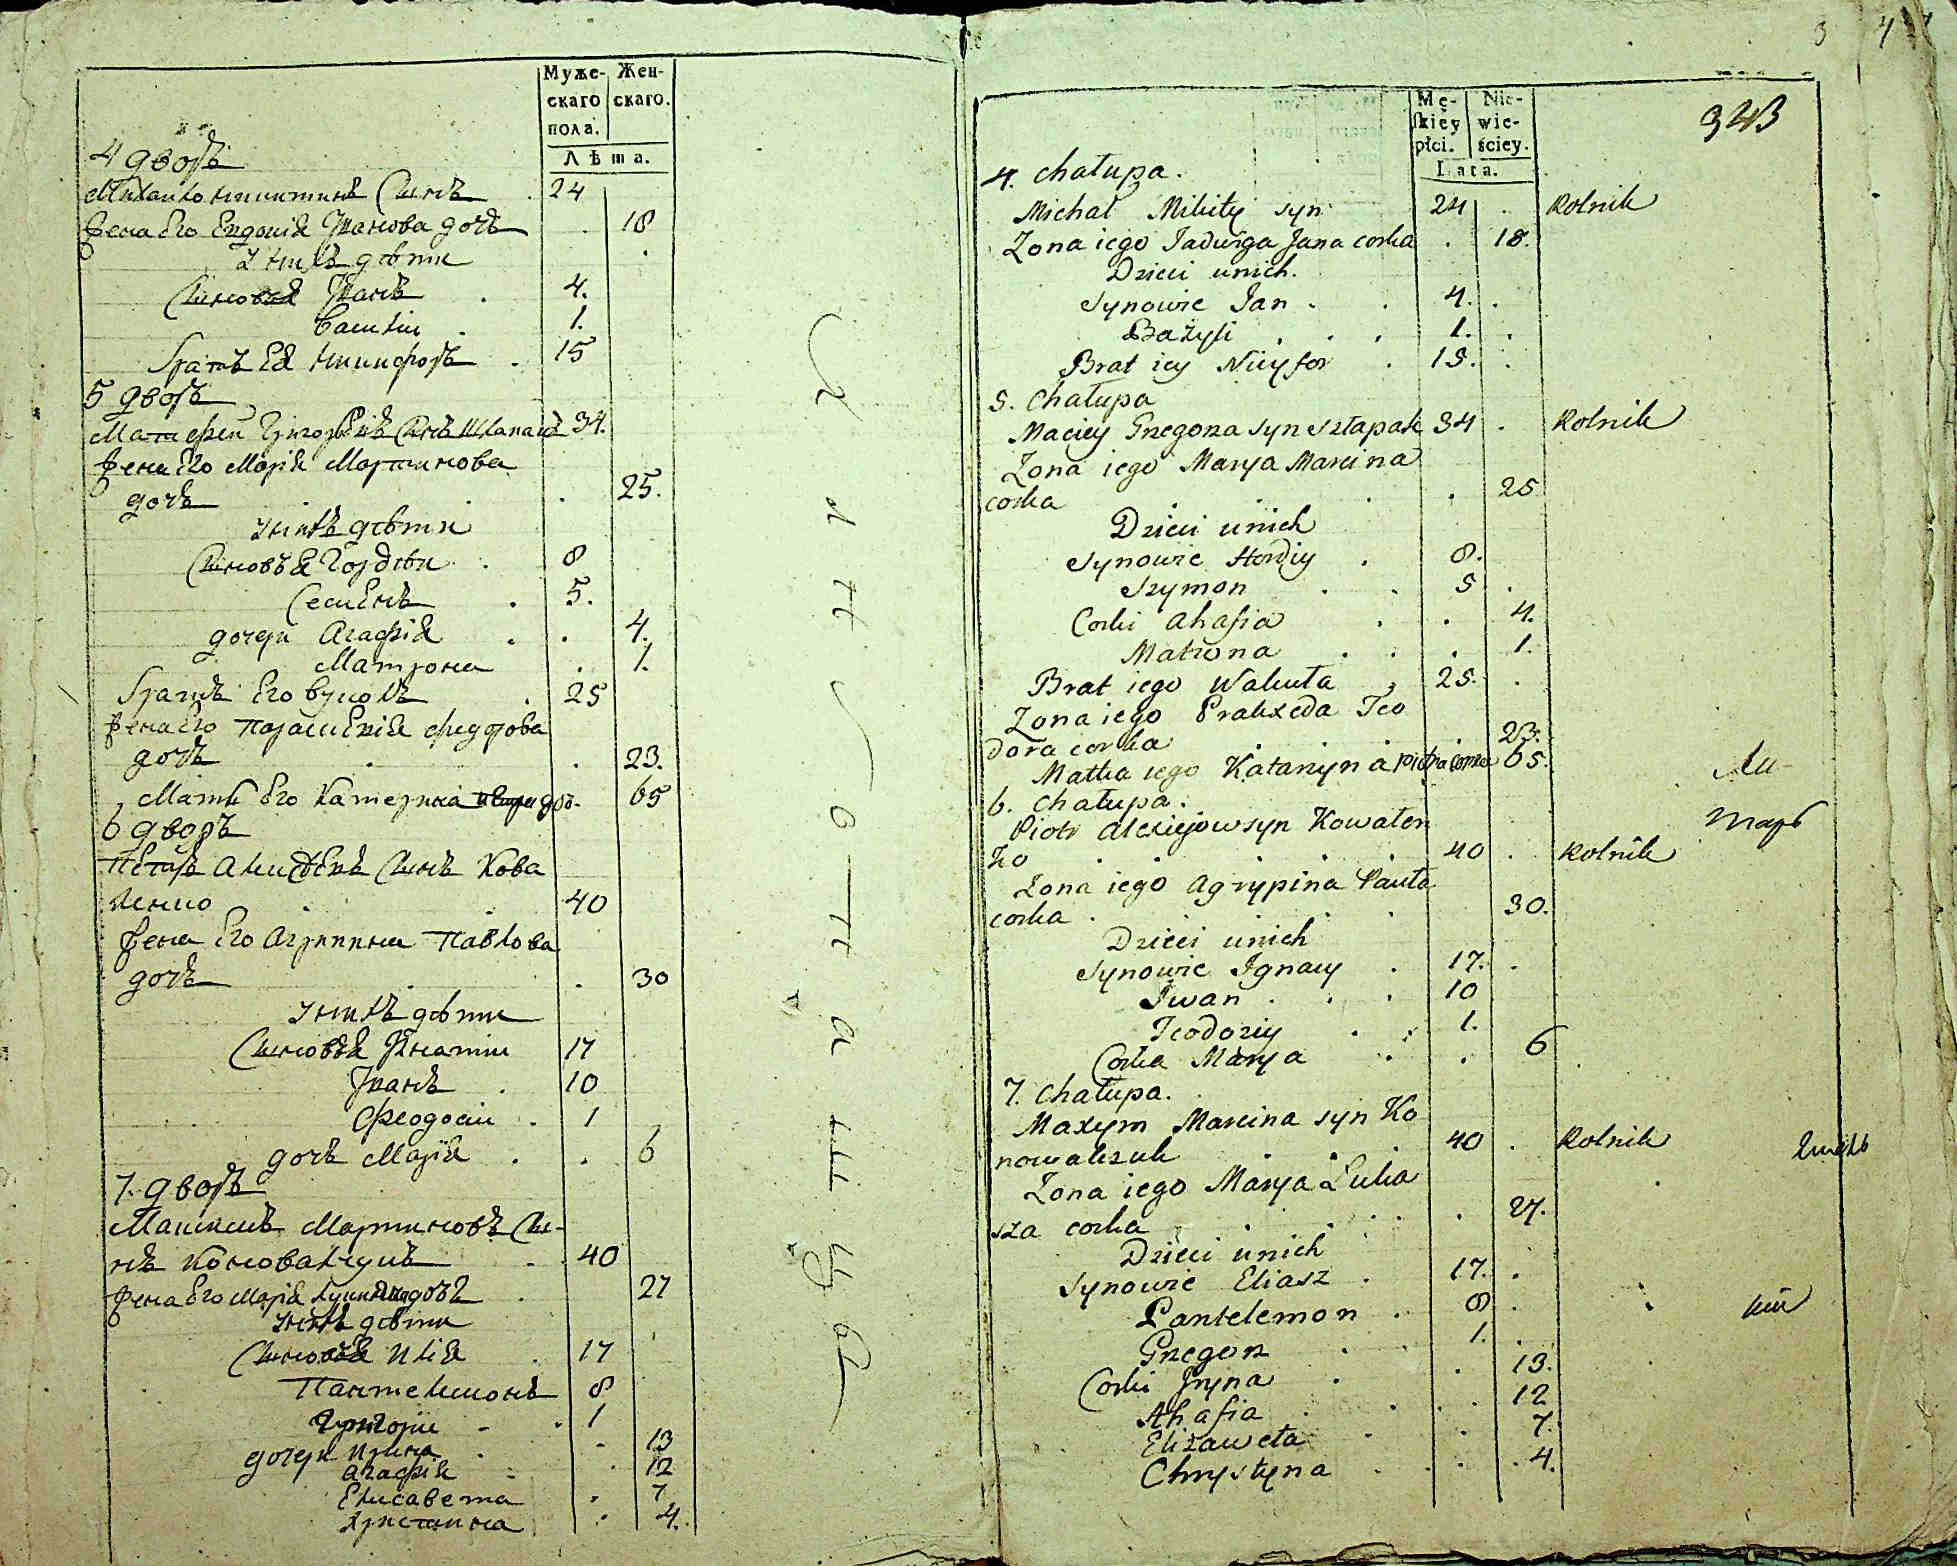 Муже-
скаго
пола.
Жен-
скаго.
Лѣта.
4 дворъ
Михайло Никитинъ Сынъ 24
жена Его Евдокія Иванова дочь 18
У нихъ дѣти
Сыновья Иванъ 4.
Василій 1.
братъ Ея Никифоръ 15
5 дворъ
Матфей Григорьевъ Сынъ Шлапакъ 34.
жена Его Марія Мартинова
дочь 25.
У нихъ дѣти
Сыновья Гордѣй 8
Семенъ 5.
дочери Агафія 4.
Матрона 1.
братъ Его Вуколъ 25
жена Его Параскевія Федорова
дочь 23.
Мать Его Катерина 65
6 дворъ
Петръ Алексѣевъ Сынъ Кова
ленко 40
жена Его Агрипина Павлова
дочь 30
У нихъ дѣти
Сыновья Игнатій 17
Иванъ 10
Феодосій 1
дочь Марія 6
7. дворъ
Максимъ Мартиновъ Сы-
нъ Коновалчукъ 40
жена Его Марія дочь 27
У нихъ дѣти
Сыновья Илія 17
Пантелимонъ 8
Григорій 1
дочери Ирина 13
Агафія 12
Елисавета 7
Христина 4.
3 4
343
Mę-
skiey
płci.
Nie-
wie-
ściey.
Lata.
4. Chałupa.
Michał Mikity syn 24 Rolnik
Zona iego Jadwiga Jana corka 18.
Dzieci unich.
Synowie Jan 4.
Bazyli 1.
Brat iey Nicyfor 15.
5. Chałupa
Maciey Grzegorza syn Szłapak 34 Rolnik
Zona iego Marya Marcina
corka 25
Dzieci unich
Synowie Hordiy 8.
Szymon 5
Corki Ahafia 4.
Matrona 1.
Brat iego Wakuła 25.
Zona iego Praxeda Teo
dora corka 23.
Matka iego Katarzyna Piotra corka 65.
6. Chałupa.
Piotr Alexiejow syn Kowalen
ko 40 Rolnik
Zona iego Agrypina Pawła
corka 30.
Dzieci unich
Synowie Ignacy 17.
Iwan 10
Teodoziy 1.
Corka Marya 6
7. Chałupa.
Maxym Marcina syn Ko
nowalczuk 40 Rolnik
Zona iego Marya Łuka
sza corka 27.
Dzieci unich
Synowie Eliasz 17.
Pantelemon 8
Grzegorz 1.
Corki Iryna 13.
Ahafia 12
Elizaweta 7.
Chrystyna 4.